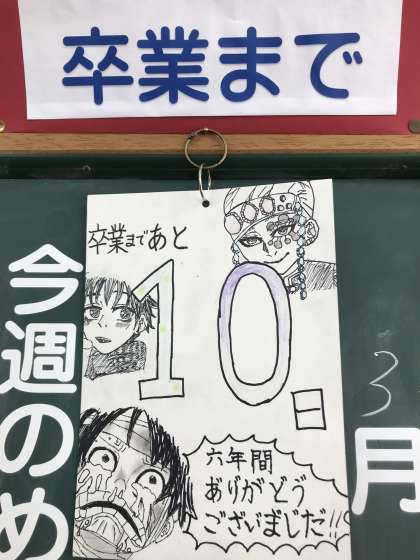 卒業まで
卒業まであと
10
日
六年間
ありがとう
ございました!!
今週のめ
3
月